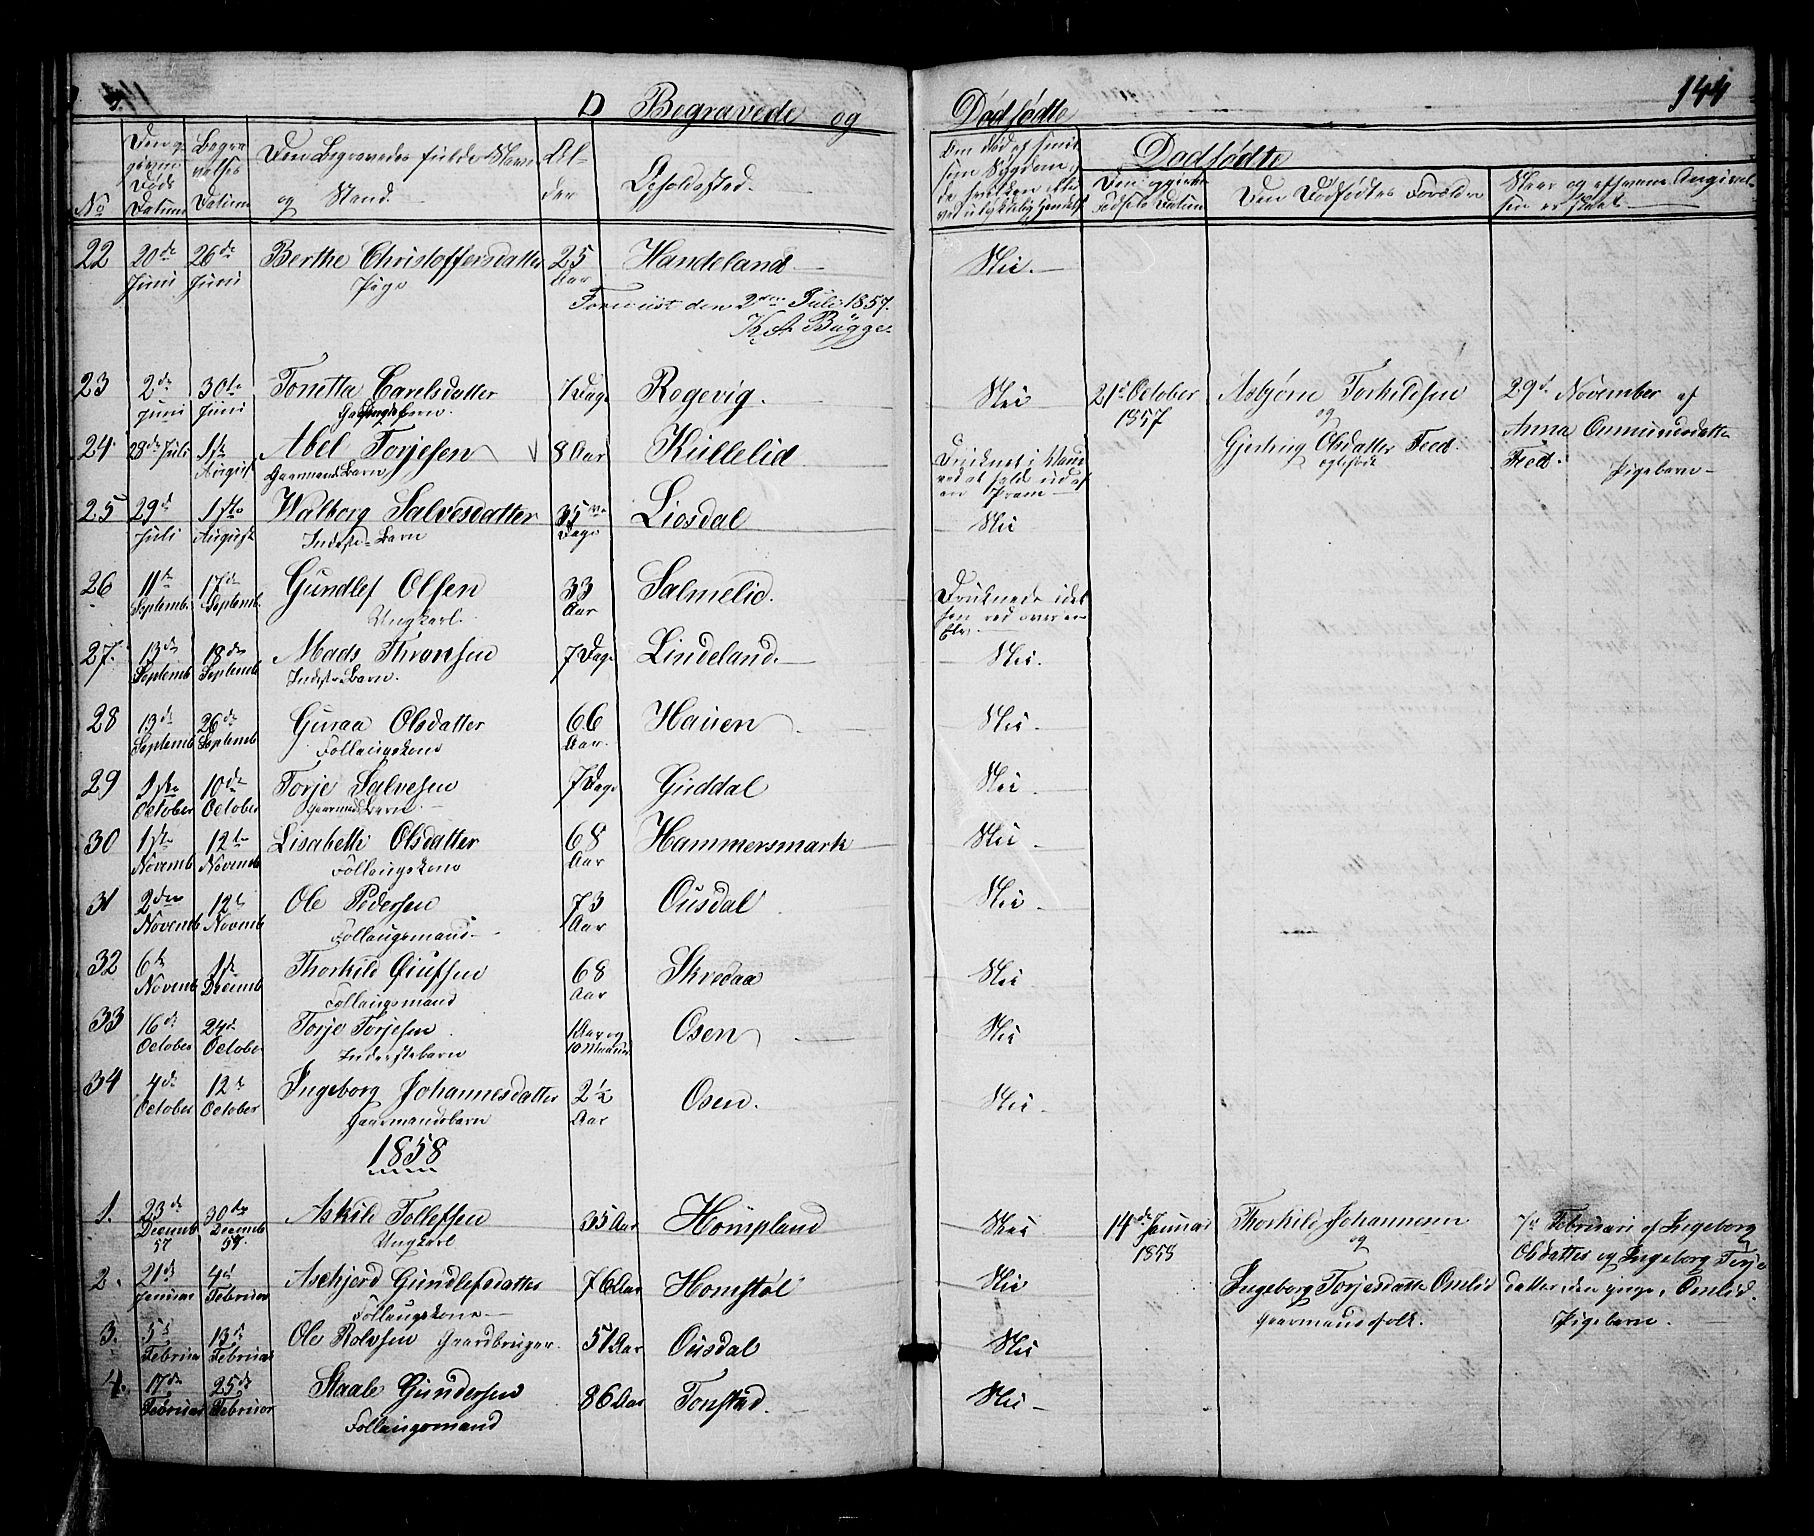 144
D Begravede og Dødfødte
No
Den opgivne Døds Datum
Begravelses Datum
Den Begravedes fulde Navn og Stand.
Alder
Opholdssted.
Dødfødte
Den Dødfødtes Forældre
22 20de Juni 26de Juni Berthe Christoffersdatter Pige 25 Aar Handeland. Nei.
Foreviist den 2den Juli 1857.
K. A. Bügge
23 2de Juni 30te Juni Tonetta Carelsdatter 7 Dage Rogevig. Nei 21de October 1857 Asbjørn Torkildsen og Gjertrug Olsdatter Feed. 29de November af Anna Ommundsdatter Feed. Pigebarn
24 28de Juli 1ste August Abel Torjesen Gaarmands Barn 8 Aar Kullelid Druknet i Vand ved at fald ud af en Pram
25 29de Juli 1ste August Walborg Salvesdatter Inderste Barn 35 Dage Liosdal Nei
26 11te Septemb. 17de Septemb. Gundlef Olsen Ungkarl. 33 Aar Salmelid. Druknede idet han red over en Elv.
27. 13de Septemb 18de Septemb Mads Thronsen Inderste Barn. 7 Dage Lindeland. Nei.
28 13de Septemb 26de Septemb Guraa Olsdatter Føllaugskone 66 Aar. Hauen Nei.
29 1ste October 10de October Torje Salvesen Gaarmands Barn. 7 Dage Guddal Nei.
30 1ste Novemb 12te Novemb Lisabeth Olsdatter Føllaugskone 68 Aar Hammersmark Nei.
31 2den Novemb 12te Novemb Ole Pedersen Føllaugsmand 73 Aar Ousdal Nei.
32 6te Novemb 1ste Decemb Thorkild Føllaugsmand 68 Aar Skredaa Nei
33 16de October 24de October Torje Torjesen Inderstebarn 1 Aar og 10 Maaned Osen Nei
34 4de October 12te October Ingeborg Johannesdatter Gaarmandsbarn 2½ Aar Osen. Nei.
1858
1. 23de Decemb 57 30te Decemb Askild Tollefsen Ungkarl 35 Aar Hompland Nei 14de Januar 1858 Thorkild Johannesen og Ingeborg Torjesdatter Omlid Gaarmandsfolk. 7de Februari af Ingeborg Olsdatter og Ingeborg Torjedatter, den yngre, Omlid. Pigebarn.
2. 21de Januar 4de Februar Aschjerd Gundlefsdatter Føllaugskone 76 Aar Homstøl Nei
3. 5te Februar 13de Februar Ole Rolvsen Gaardbruger. 51 Aar Ousdal Nei
4. 17de Februar 25de Februar Staale Gundersen Føllaugsmand 86 Aar Tonstad. Nei.